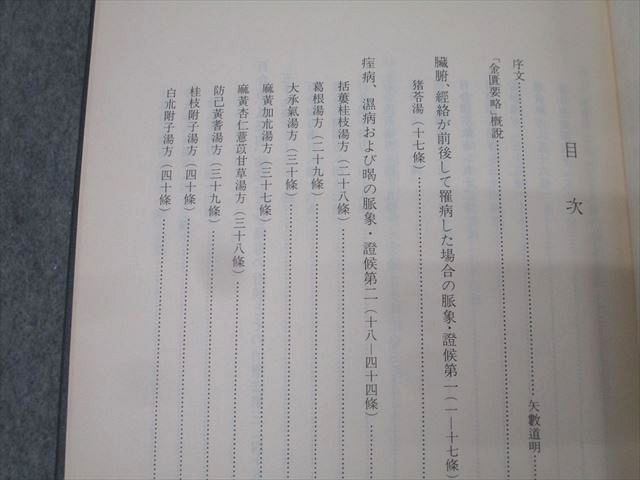 目次
序文 矢數道明
「金匱要略」概說
臟腑、經絡が前後して罹病した場合の脈象・證候第一（一—十七條）
猪苓湯（十七條）
痙病、濕病および暍の脈象・證候第二（十八—四十四條）
括蔞桂枝湯方（二十八條）
葛根湯方（二十九條）
大承氣湯方（三十條）
麻黃加朮湯方（三十七條）
麻黃杏仁薏苡甘草湯方（三十八條）
防己黃蓍湯方（三十九條）
桂枝附子湯方（四十條）
白朮附子湯方（四十條）